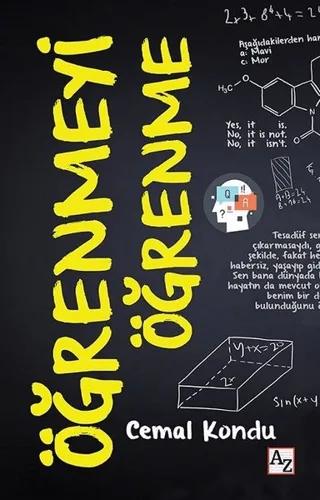 ÖĞRENMEYİ
ÖĞRENME
2x3x 8⁴+4=2
Aşağıdakilerden har
a: Mavi
c: Mor
H₃C
O
N
O
Yes, it is.
No, it is not.
No, it isn't.
A+B=24
Q
A
?
Tesadüf se
çıkarmasaydı, a
şekilde, fakat he
habersiz, yaşayıp gid
Sen bana dünyada b
hayatın da mevcut o
benim bir d
bulunduğunu ö
y+x=20
2x
Sin(x+y
Cemal Kondu
AZ